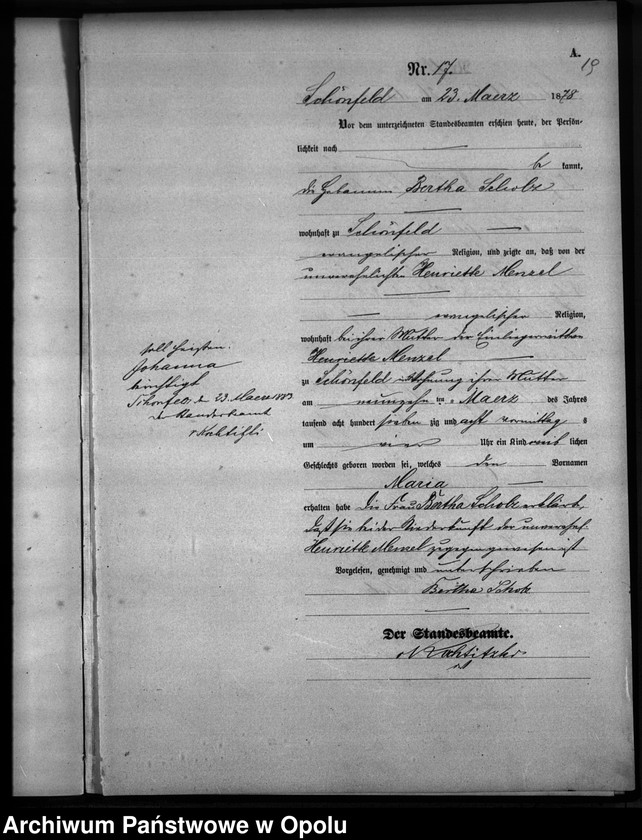 A.
19
Nr. 17.
Schönfeld am 23. Maerz 1878
Vor dem unterzeichneten Standesbeamten erschien heute, der Persön-
lichkeit nach
be kannt,
die Hebamme Bertha Scholz
wohnhaft zu Schönfeld
evangelischer Religion, und zeigte an, daß von der
unverehelichten Henriette Menzel
evangelischer Religion,
wohnhaft bei ihrer Mutter der
Henriette Menzel
zu Schönfeld Wohnung ihrer Mutter
am neunzehn ten Maerz des Jahres
tausend acht hundert sieben zig und acht vormittag s
um vier Uhr ein Kind weib lichen
Geschlechts geboren worden sei, welches den Vornamen
Maria
erhalten habe Die Frau Bertha Scholz erklärt,
daß sie bei der Niederkunft der unverehel.
Henriette Menzel zugegen gewesen ist
Vorgelesen, genehmigt und unterschrieben
Bertha Scholz
Der Standesbeamte.
soll heissen:
Johanna
Schönfeld, d. 23. Maerz
Archiwum Państwowe w Opolu